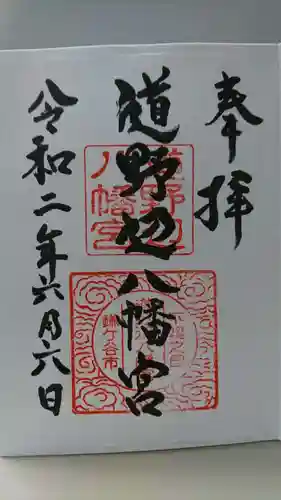 奉拝
道野辺八幡宮
令和二年六月六日
道野辺
八幡宮
鎌ケ谷市